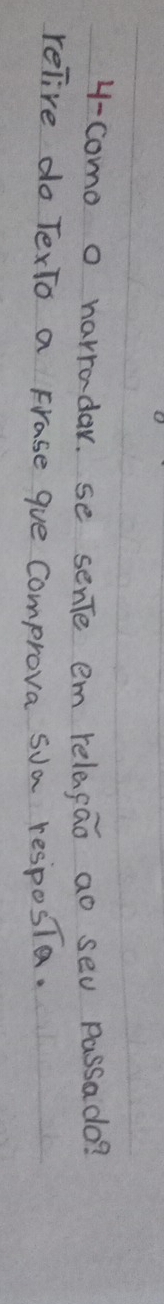 4-Como o narrador. se sente em relação ao seu passado?
retire do Texto a Frase que Comprova sua resposta.